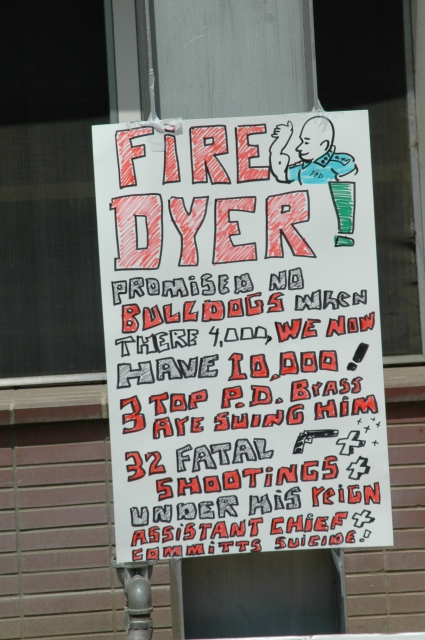 FiRE
DYER!
PROMiSED NO
BULLDOGS WHEN
THERE 4,000, WE NOW
HAVE 10,000!
3 TOP P.D. BRASS
ARE SUING HIM
32 FATAL
SHOOTiNGS
UNDER HiS REiGN
ASSISTANT CHIEF
COMMITTS SUICIDE.